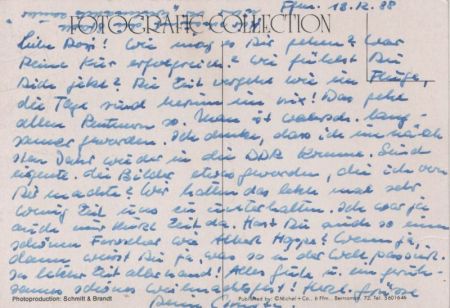 Ffm. 18.12.88
FOTOGRAFIE COLLECTION
Liebe Rosi! Wie mag es Dir gehen? War
Deine Kur erfolgreich? Wie fühlst Du
Dich jetzt? Die Zeit vergeht wie im Fluge,
die Tage sind herum im nix! Das gehe
allen Rentnern so. Man ist wahrsch. lang-
samer geworden. Ich denke, dass ich im näch-
sten Jahr wieder in die DDR komme. Sind
eigentl. die Bilder etwas geworden, die ich von
Dir machte? Wir hatten das letzte mal sehr
wenig Zeit uns zu unterhalten. Ich war ja
auch nur kurze Zeit da. Hast Du auch so 'nen
schönen Fernseher wie Albert Hoppe? Wenn ja,
dann weisst Du ja, was so in der Welt passiert.
In letzter Zeit allerhand! Alles Gute u. ein geruh-
sames schönes Weihnachtsfest! Herzl. Grüsse
Photoproduction: Schmitt & Brandt
Published by: © Michel + Co., 6 Ffm., Tel.